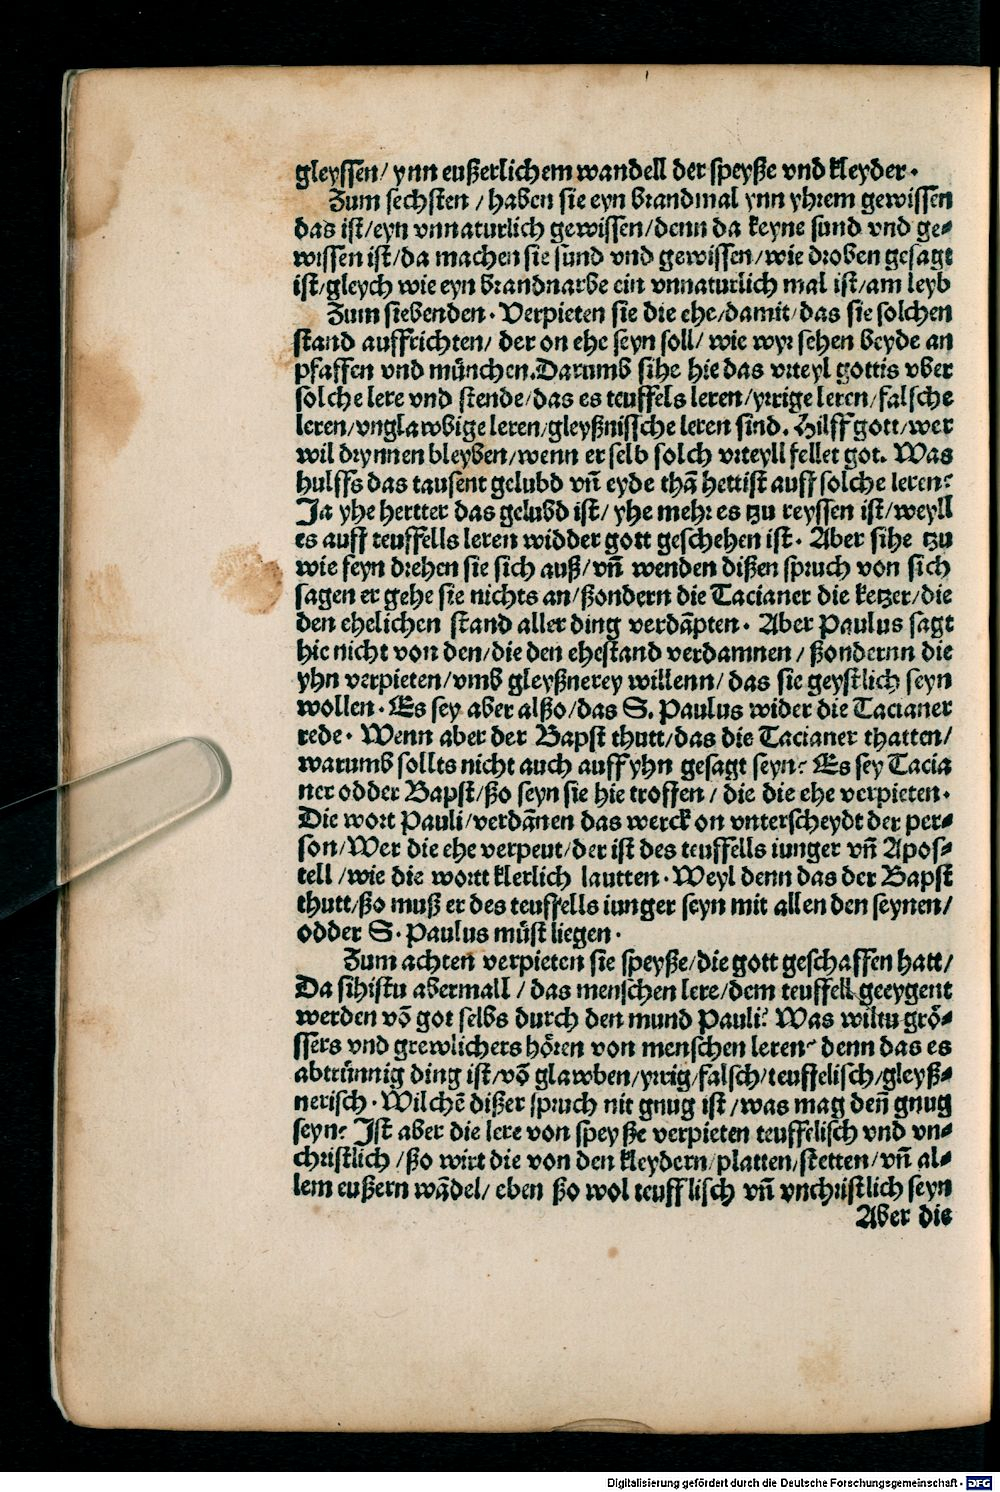 gleyssen/ ynn eußerlichem wandell der speyße vnd kleyder.
Zum sechsten / haben sie eyn brandmal ynn yhrem gewissen
das ist/eyn vnnaturlich gewissen/denn da keyne sund vnd ge⸗
wissen ist/da machen sie sund vnd gewissen/wie droben gesagt
ist/gleych wie eyn brandnarbe ein vnnaturlich mal ist/am leyb
Zum siebenden. Verpieten sie die ehe/damit/das sie solchen
stand auffrichten/ der on ehe seyn soll/ wie wyr sehen beyde an
pfaffen vnd münchen.Darumb sihe hie das vrteyl gottis vber
solche lere vnd stende/das es teuffels leren/yrrige leren/falsche
leren/vnglawbige leren/gleyßnissche leren sind. Hilff gott/wer
wil drynnen bleyben/wenn er selb solch vrteyll fellet got. Was
hulffs das tausent gelubd vñ eyde thã hettist auff solche leren?
Ja yhe hertter das gelubd ist/ yhe mehr es tzu reyssen ist/weyll
es auff teuffells leren widder gott geschehen ist. Aber sihe tzu
wie feyn drehen sie sich auß/vñ wenden dißen spruch von sich
sagen er gehe sie nichts an/ßondern die Tacianer die ketzer/die
den ehelichen stand aller ding verdãpten. Aber Paulus sagt
hie nicht von den/die den ehestand verdamnen/ ßondernn die
yhn verpieten/vmb gleyßnerey willenn/ das sie geystlich seyn
wollen. Es sey aber alßo/das S. Paulus wider die Tacianer
rede. Wenn aber der Bapst thutt/das die Tacianer thatten/
warumb sollts nicht auch auff yhn gesagt seyn? Es sey Tacia
ner odder Bapst/ßo seyn sie hie troffen/ die die ehe verpieten.
Die wort Pauli/verdãnen das werck on vnterscheydt der per⸗
son/Wer die ehe verpeut/der ist des teuffells iunger vñ Apos⸗
tell /wie die wortt klerlich lautten. Weyl denn das der Bapst
thutt/ßo muß er des teuffells iunger seyn mit allen den seynen/
odder S. Paulus müst liegen.
Zum achten verpieten sie speyße/die gott geschaffen hatt/
Da sihistu abermall / das menschen lere/dem teuffell geeygent
werden võ got selbs durch den mund Pauli? Was wiltu grö⸗
ssers vnd grewlichers hören von menschen leren? denn das es
abtrünnig ding ist/võ glawben/yrrig/falsch/teuffelisch/gleyß⸗
nerisch. Wilchẽ dißer spruch nit gnug ist /was mag deñ gnug
seyn? Ist aber die lere von speyße verpieten teuffelisch vnd vn⸗
christlich /ßo wirt die von den kleydern/platten/stetten/vñ al⸗
lem eußern wãdel/ eben ßo wol teufflisch vñ vnchristlich seyn
Aber die
Digitalisierung gefördert durch die Deutsche Forschungsgemeinschaft - DFG